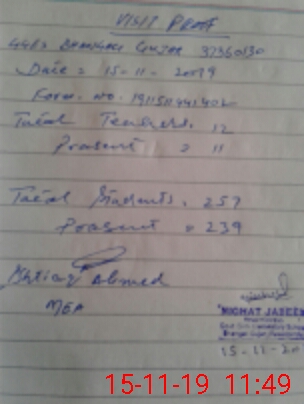 VISIT PROF
GGES BHANGALI GUJAR 37360130
Date : 15-11-2019
Form. no. 191151141402
Total Teachers. 12
Present = 11
Total Students. 257
Present = 239
Ahmed
MEA
NIGHAT JABEEN
15-11-20
15-11-19 11:49